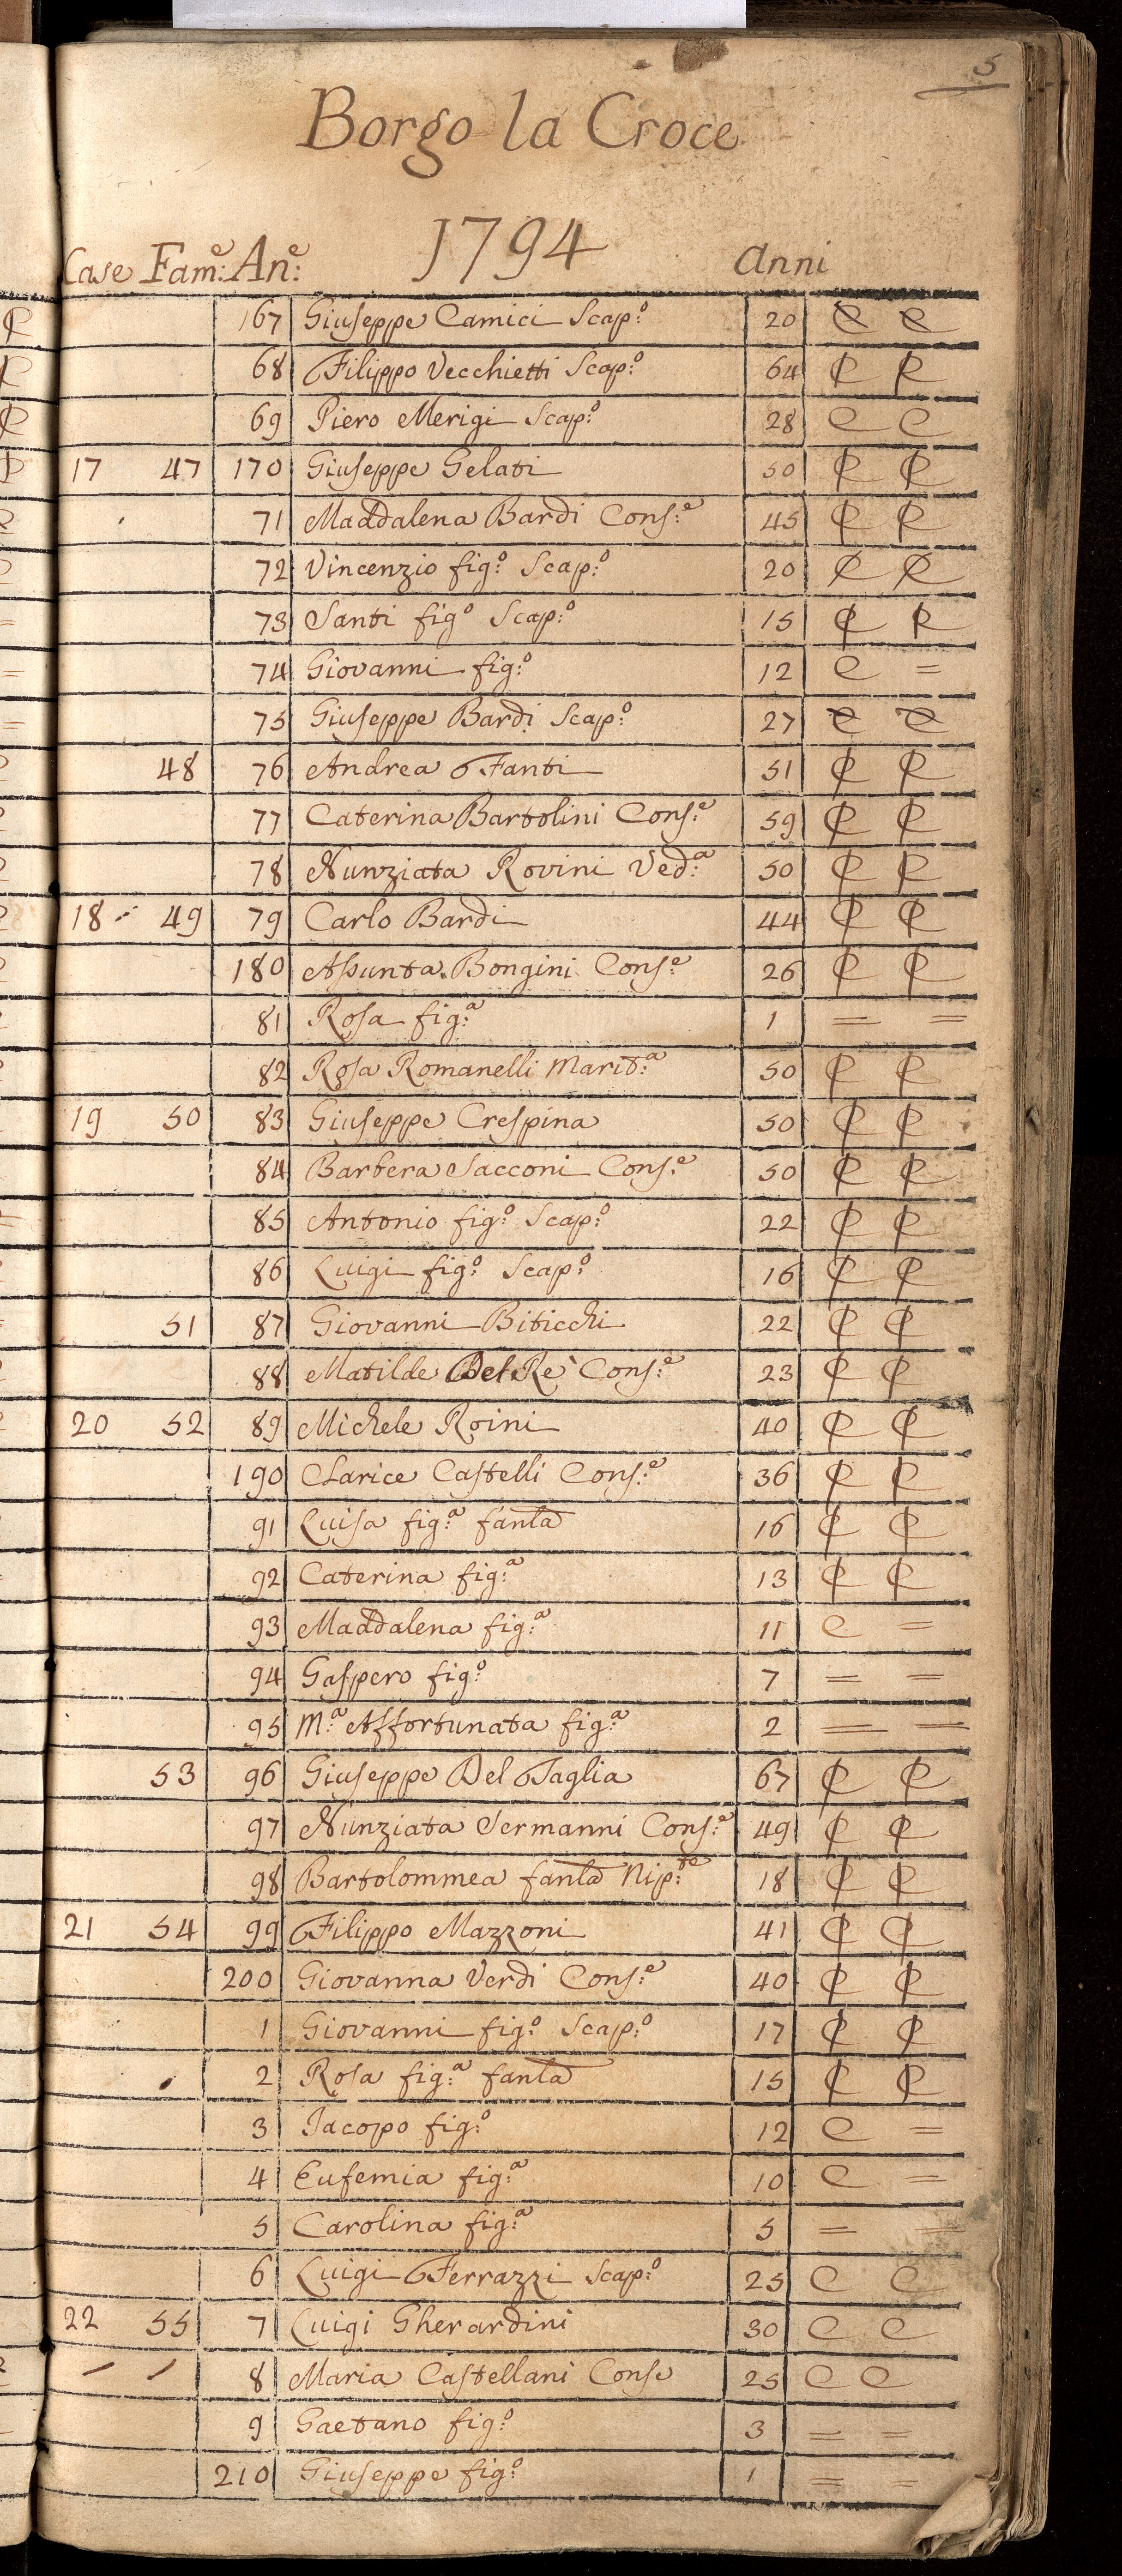 5
Borgo la Croce
1794
Case Fam:e An:e Anni
167 Giuseppe Camici Scap:o 20 C C
68 Filippo Vecchietti Scap:o 64 C C
69 Piero Merigi Scap:o 28 C C
17 47 170 Giuseppe Gelati 50 C C
71 Maddalena Bardi Cons:e 45 C C
72 Vincenzio fig:o Scap:o 20 C C
73 Santi fig:o Scap:o 15 C C
74 Giovanni fig:o 12 C =
75 Giuseppe Bardi Scap:o 27 C C
48 76 Andrea Fanti 51 C C
77 Caterina Bartolini Cons:e 59 C C
78 Nunziata Rovini Ved:a 50 C C
18 49 79 Carlo Bardi 44 C C
180 Assunta Bongini Cons:e 26 C C
81 Rosa fig:a 1 = =
82 Rosa Romanelli Marit:a 50 C C
19 50 83 Giuseppe Crespina 50 C C
84 Barbera Sacconi Cons:e 50 C C
85 Antonio fig:o Scap:o 22 C C
86 Luigi fig:o Scap:o 16 C C
51 87 Giovanni Biticchi 22 C C
88 Matilde Del Re Cons:e 23 C C
20 52 89 Michele Roini 40 C C
190 Clarice Castelli Cons:e 36 C C
91 Luisa fig:a fanla 16 C C
92 Caterina fig:a 13 C C
93 Maddalena fig:a 11 C =
94 Gaspero fig:o 7 = =
95 M:a Affortunata fig:a 2 = =
53 96 Giuseppe Del Taglia 67 C C
97 Nunziata Sermanni Cons:e 49 C C
98 Bartolommea fanla Nip:te 18 C C
21 54 99 Filippo Mazzoni 41 C C
200 Giovanna Verdi Cons:e 40 C C
1 Giovanni fig:o Scap:o 17 C C
2 Rosa fig:a fanla 15 C C
3 Jacopo fig:o 12 C =
4 Eufemia fig:a 10 C =
5 Carolina fig:a 5 = =
6 Luigi Ferrazzi Scap:o 25 C C
22 55 7 Luigi Gherardini 30 C C
8 Maria Castellani Conse 25 C C
9 Gaetano fig:o 3 = =
210 Giuseppe fig:o 1 = =